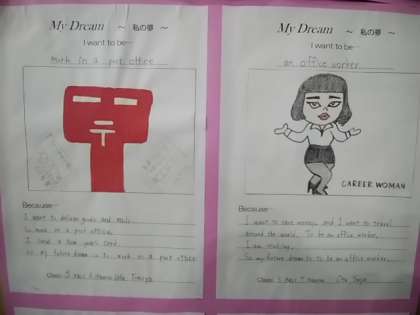 My Dream ～ 私の夢 ～
I want to be…
Work in a post office
Because…
I want to deliver goods and mails.
to work in a post office.
I send a New year's Card.
So my future dream is to work in a post office.
Class 5
My Dream ～ 私の夢 ～
I want to be…
an office worker
CAREER WOMAN
Because…
I want to save money, and I want to travel
around the world. To be an office worker,
I am studying.
So my future dream is to be an office worker.
Class